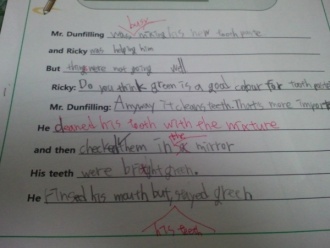 busy
Mr. Dunfilling was making his new tooth paste
and Ricky was helping him
But things were not going well
Ricky: Do you think green is a good colour for tooth paste
Mr. Dunfilling: Anyway it cleans teeth. That's more import
He cleaned his teeth with the mixture
the
and then checked them in mirror
His teeth were bright green.
He rinsed his mouth but, stayed green
his teeth